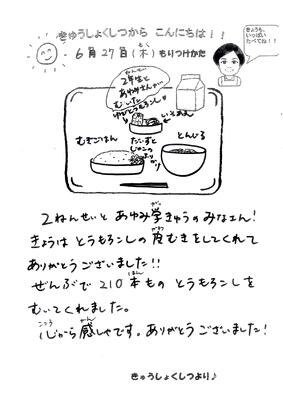 きゅうしょくしつから こんにちは!!
6月27日(木)もりつけかた
きょうも、
いっぱい
たべてね!!
2年生と
あゆみさんが
むいた
ゆがとうもろこし
いそあえ
むぎごはん
だいずと
じゃこの
とんじる
2ねんせいと あゆみ学きゅうのみなさん!
きょうは とうもろこしの皮むきをしてくれて
ありがとうございました!!
ぜんぶで 210本もの とうもろこしを
むいてくれました。
心から感しゃです。ありがとうございました!
きゅうしょくしつより♪